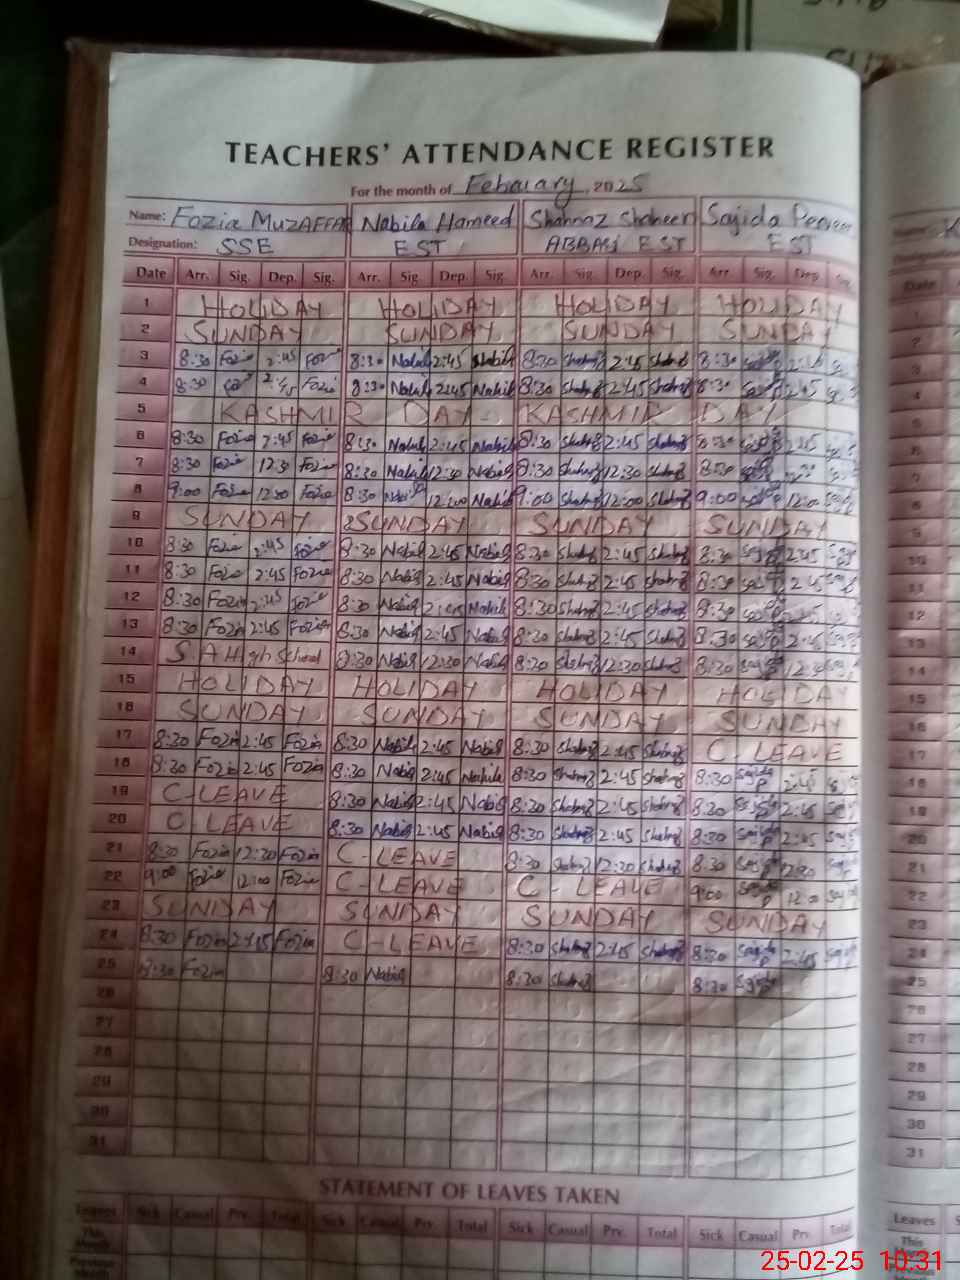 TEACHERS' ATTENDANCE REGISTER
For the month of February, 2025
Name: Fozia MUZAFFAR Nabila Hameed Shahnaz Shaheen Sajida Perveen
Designation: SSE EST ABBASI EST EST
Date Arr. Sig. Dep. Sig. Arr. Sig. Dep. Sig. Arr. Sig. Dep. Sig. Arr. Sig. Dep. Sig.
1 HOLIDAY HOLIDAY HOLIDAY HOLIDAY
2 SUNDAY SUNDAY SUNDAY SUNDAY
3 8:30 Fozia 2:45 Fozia 8:30 Nabila 2:45 Nabila 8:30 Shahnaz 2:45 Shahnaz 8:30
4 8:30 2:45 Fozia 8:30 Nabila 2:45 Nabila 8:30 Shahnaz 2:45 Shahnaz 8:30 2:45
5 KASHMIR DAY KASHMIR DAY
6 8:30 Fozia 2:45 Fozia 8:30 Nabila 2:45 Nabila 8:30 Shahnaz 2:45 Shahnaz 8:30 2:45
7 8:30 Fozia 12:30 Fozia 8:30 Nabila 12:30 Nabila 8:30 Shahnaz 12:30 Shahnaz 8:30
8 9:00 Fozia 12:00 Fozia 8:30 Nabila 12:00 Nabila 9:00 Shahnaz 12:00 Shahnaz 9:00 12:00
9 SUNDAY SUNDAY SUNDAY SUNDAY
10 8:30 Fozia 2:45 Fozia 8:30 Nabila 2:45 Nabila 8:30 Shahnaz 2:45 Shahnaz 8:30 2:45
11 8:30 Fozia 2:45 Fozia 8:30 Nabila 2:45 Nabila 8:30 Shahnaz 2:45 Shahnaz 8:30 2:45
12 8:30 Fozia 2:45 Fozia 8:30 Nabila 2:45 Nabila 8:30 Shahnaz 2:45 Shahnaz 8:30
13 8:30 Fozia 2:45 Fozia 8:30 Nabila 2:45 Nabila 8:30 Shahnaz 2:45 Shahnaz 8:30 2:45
14 S.A High School 8:30 Nabila 12:30 Nabila 8:30 Shahnaz 12:30 Shahnaz 8:30 12:30
15 HOLIDAY HOLIDAY HOLIDAY HOLIDAY
16 SUNDAY SUNDAY SUNDAY SUNDAY
17 8:30 Fozia 2:45 Fozia 8:30 Nabila 2:45 Nabila 8:30 Shahnaz 2:45 Shahnaz C-LEAVE
18 8:30 Fozia 2:45 Fozia 8:30 Nabila 2:45 Nabila 8:30 Shahnaz 2:45 Shahnaz 8:30 Sajida P 2:45
19 C-LEAVE 8:30 Nabila 2:45 Nabila 8:30 Shahnaz 2:45 Shahnaz 8:30 2:45
20 C LEAVE 8:30 Nabila 2:45 Nabila 8:30 Shahnaz 2:45 Shahnaz 8:30 2:45
21 8:30 Fozia 12:30 Fozia C-LEAVE 8:30 Shahnaz 12:30 Shahnaz 8:30 12:30
22 9:00 Fozia 12:00 Fozia C-LEAVE C-LEAVE 9:00 12:00
23 SUNDAY SUNDAY SUNDAY SUNDAY
24 8:30 Fozia 2:45 Fozia C-LEAVE 8:30 Shahnaz 2:45 Shahnaz 8:30 Sajida P 2:45
25 8:30 Fozia 8:30 Nabila 8:30 Shahnaz 8:30 Sajida
26
27
28
29
30
31
STATEMENT OF LEAVES TAKEN
Leaves Sick Casual Prv. Total Sick Casual Prv. Total Sick Casual Prv. Total Sick Casual Prv. Total
This Month
Previous Month
25-02-25 10:31